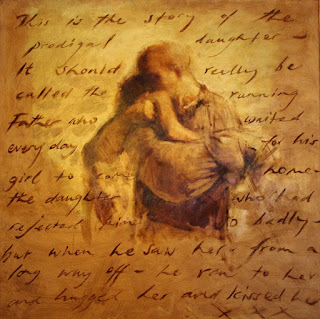 This is the story of the
prodigal daughter -
It should really be
called the running
Father who waited
everyday for his
girl to come home-
the daughter who had
rejected him so badly-
but when he saw her - from a
long way off - he ran to her
and hugged her and kissed her
x x x